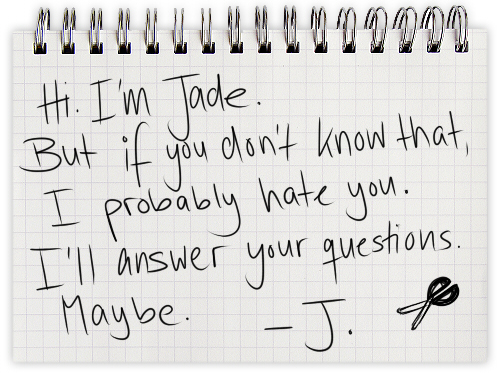 Hi. I'm Jade.
But if you don't know that,
I probably hate you.
I'll answer your questions.
Maybe. – J.